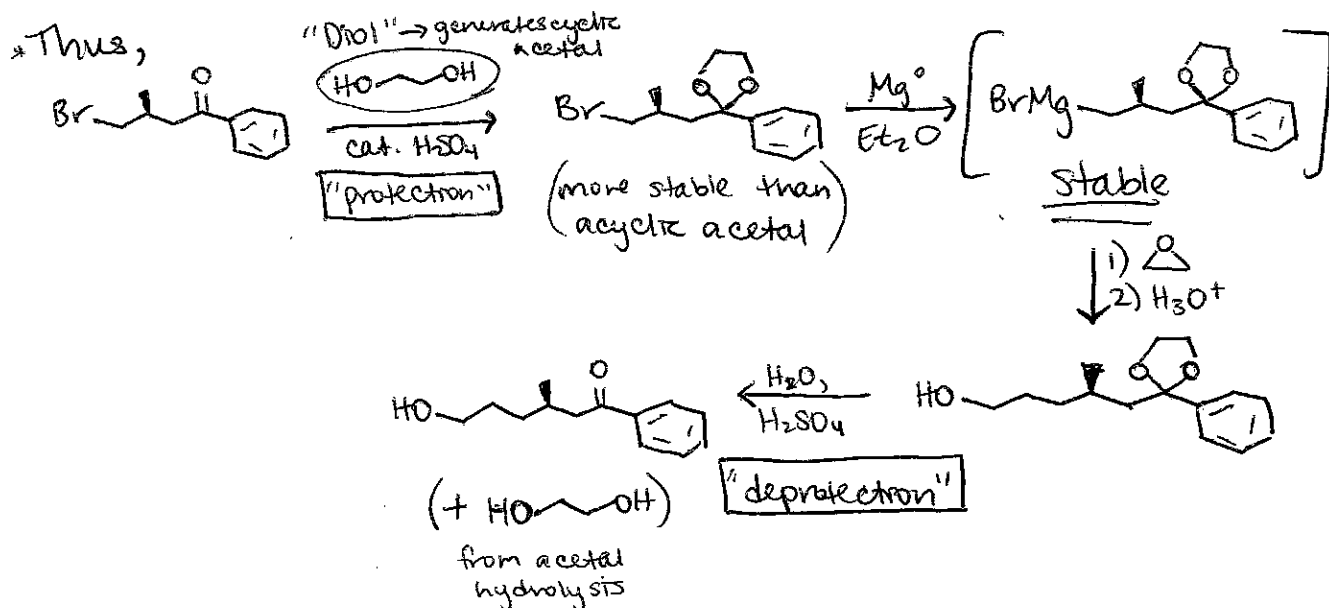 *Thus,
"Diol" → generates cyclic
acetal
HO OH
cat. H₂SO₄
"protection"
Br O
Br O O
(more stable than
acyclic acetal)
Mg°
Et₂O
[BrMg O O]
stable
1) O
2) H₃O⁺
HO O O
H₂O,
H₂SO₄
"deprotection"
HO O
(+ HO OH)
from acetal
hydrolysis